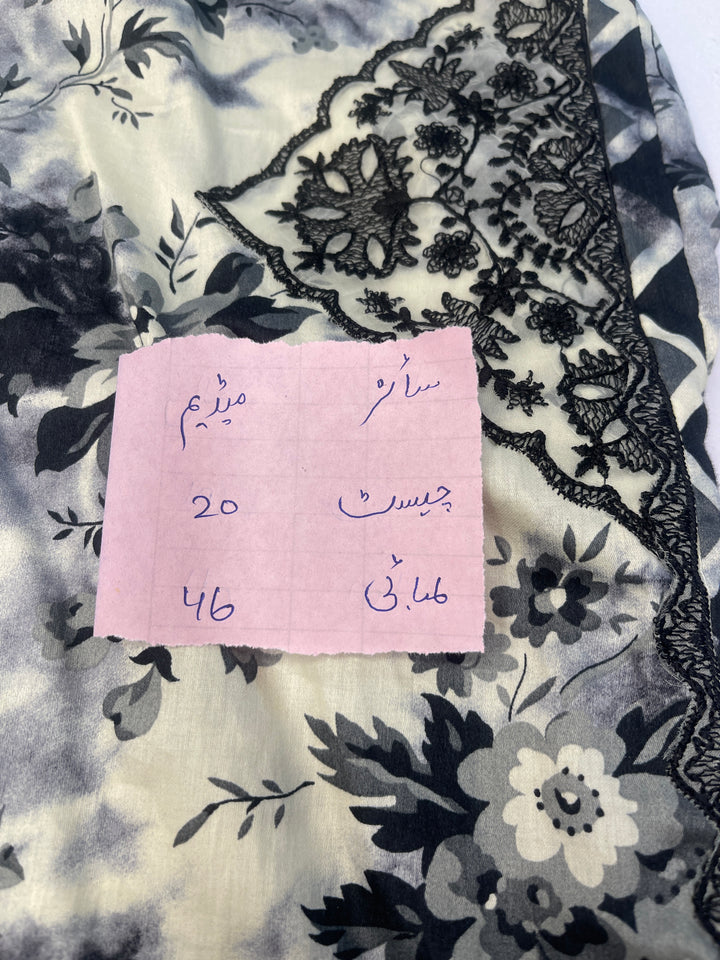 سائز میڈیم
چیسٹ 20
لمبائی 46